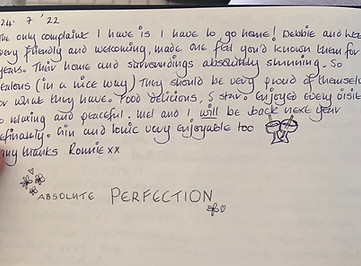 24. 7 '22
The only complaint I have is I have to go home! Debbie and her
very friendly and welcoming, made one feel you'd known them for
years. Their home and surroundings absolutely stunning. So
jealous (in a nice way) They should be very proud of themselves
for what they have. Food delicious, 5 star. Enjoyed every
so relaxing and peaceful. Mel and I will be back next year
definately. Gin and tonic very enjoyable too
many thanks Ronnie xx
ABSOLUTE PERFECTION